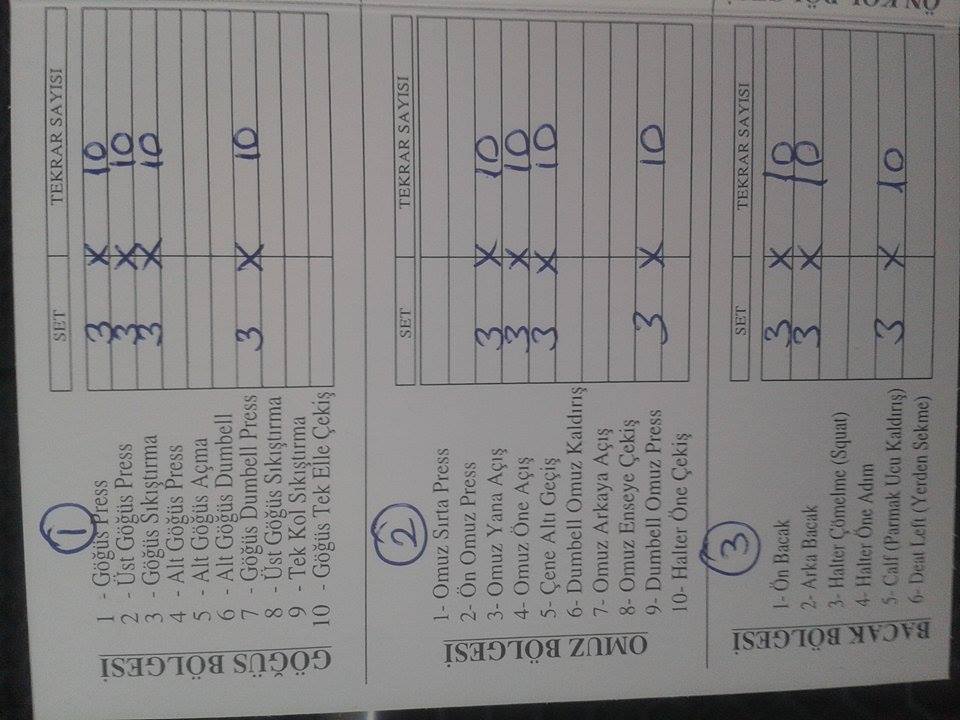 GÖĞÜS BÖLGESİ
1
SET TEKRAR SAYISI
1 - Göğüs Press 3 X 10
2 - Üst Göğüs Press 3 X 10
3 - Göğüs Sıkıştırma 3 X 10
4 - Alt Göğüs Press
5 - Alt Göğüs Açma
6 - Alt Göğüs Dumbell
7 - Göğüs Dumbell Press 3 X 10
8 - Üst Göğüs Sıkıştırma
9 - Tek Kol Sıkıştırma
10 - Göğüs Tek Elle Çekiş
OMUZ BÖLGESİ
2
SET TEKRAR SAYISI
1- Omuz Sırta Press
2- Ön Omuz Press
3- Omuz Yana Açış 3 X 10
4- Omuz Öne Açış 3 X 10
5- Çene Altı Geçiş 3 X 10
6- Dumbell Omuz Kaldırış
7- Omuz Arkaya Açış
8- Omuz Enseye Çekiş
9- Dumbell Omuz Press 3 X 10
10- Halter Öne Çekiş
BACAK BÖLGESİ
3
SET TEKRAR SAYISI
1- Ön Bacak 3 X 10
2- Arka Bacak 3 X 10
3- Halter Çömelme (Squat)
4- Halter Öne Adım
5- Calf (Parmak Ucu Kaldırış) 3 X 10
6- Deat Left (Yerden Sekme)
ÖN KOL BÖLGESİ